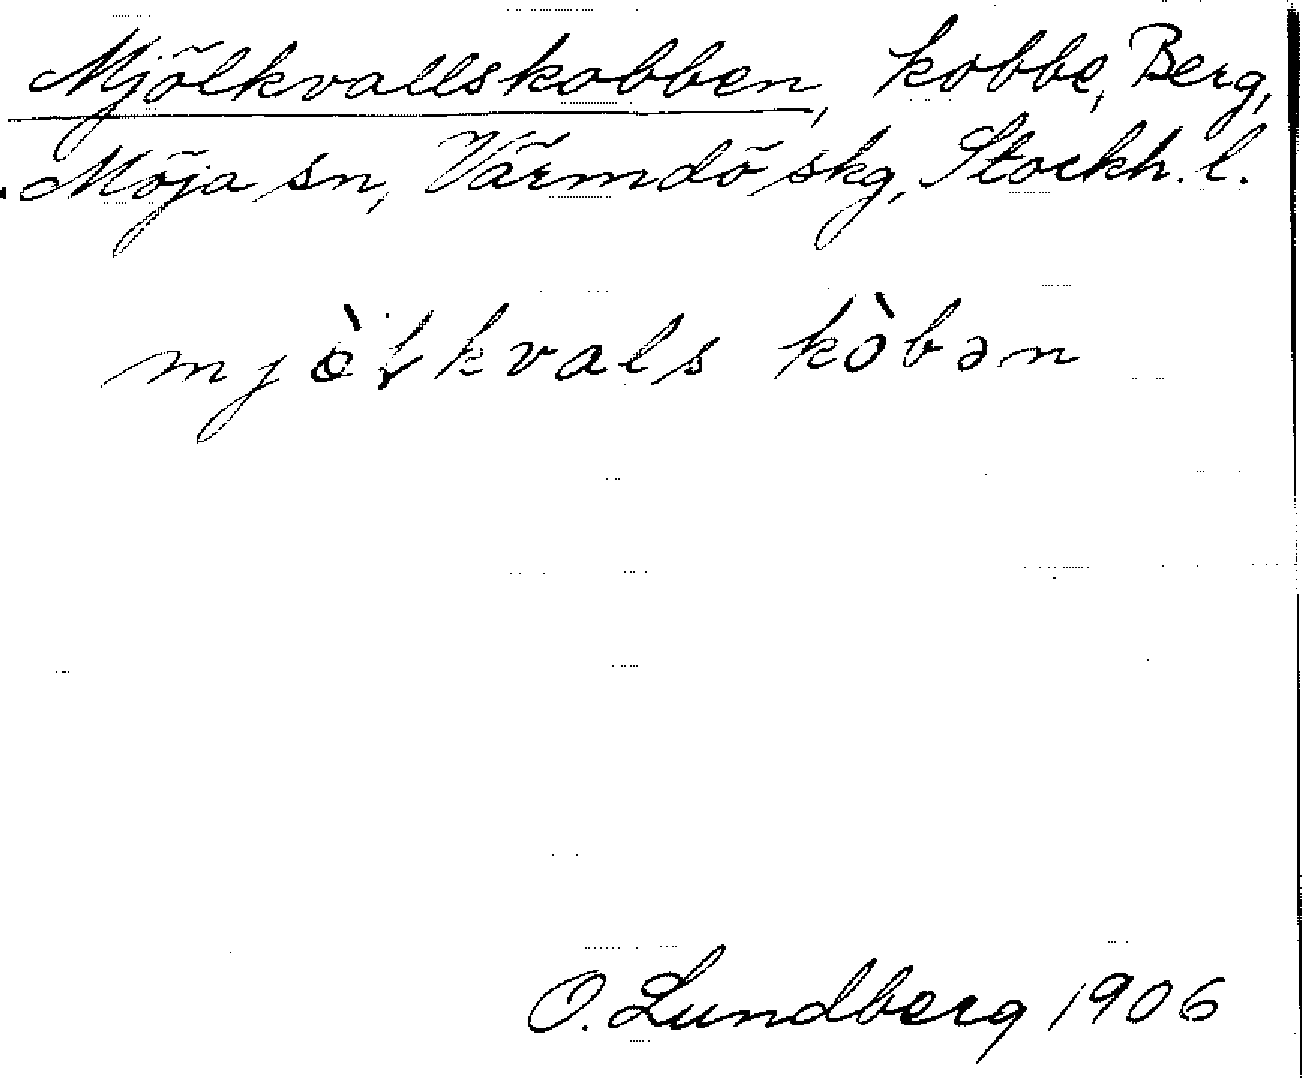 Mjölkvallskobben, kobbe, Berg,
Möja sn, Värmdö skg, Stockh. l.
mjòłkvals kòbən
O. Lundberg 1906